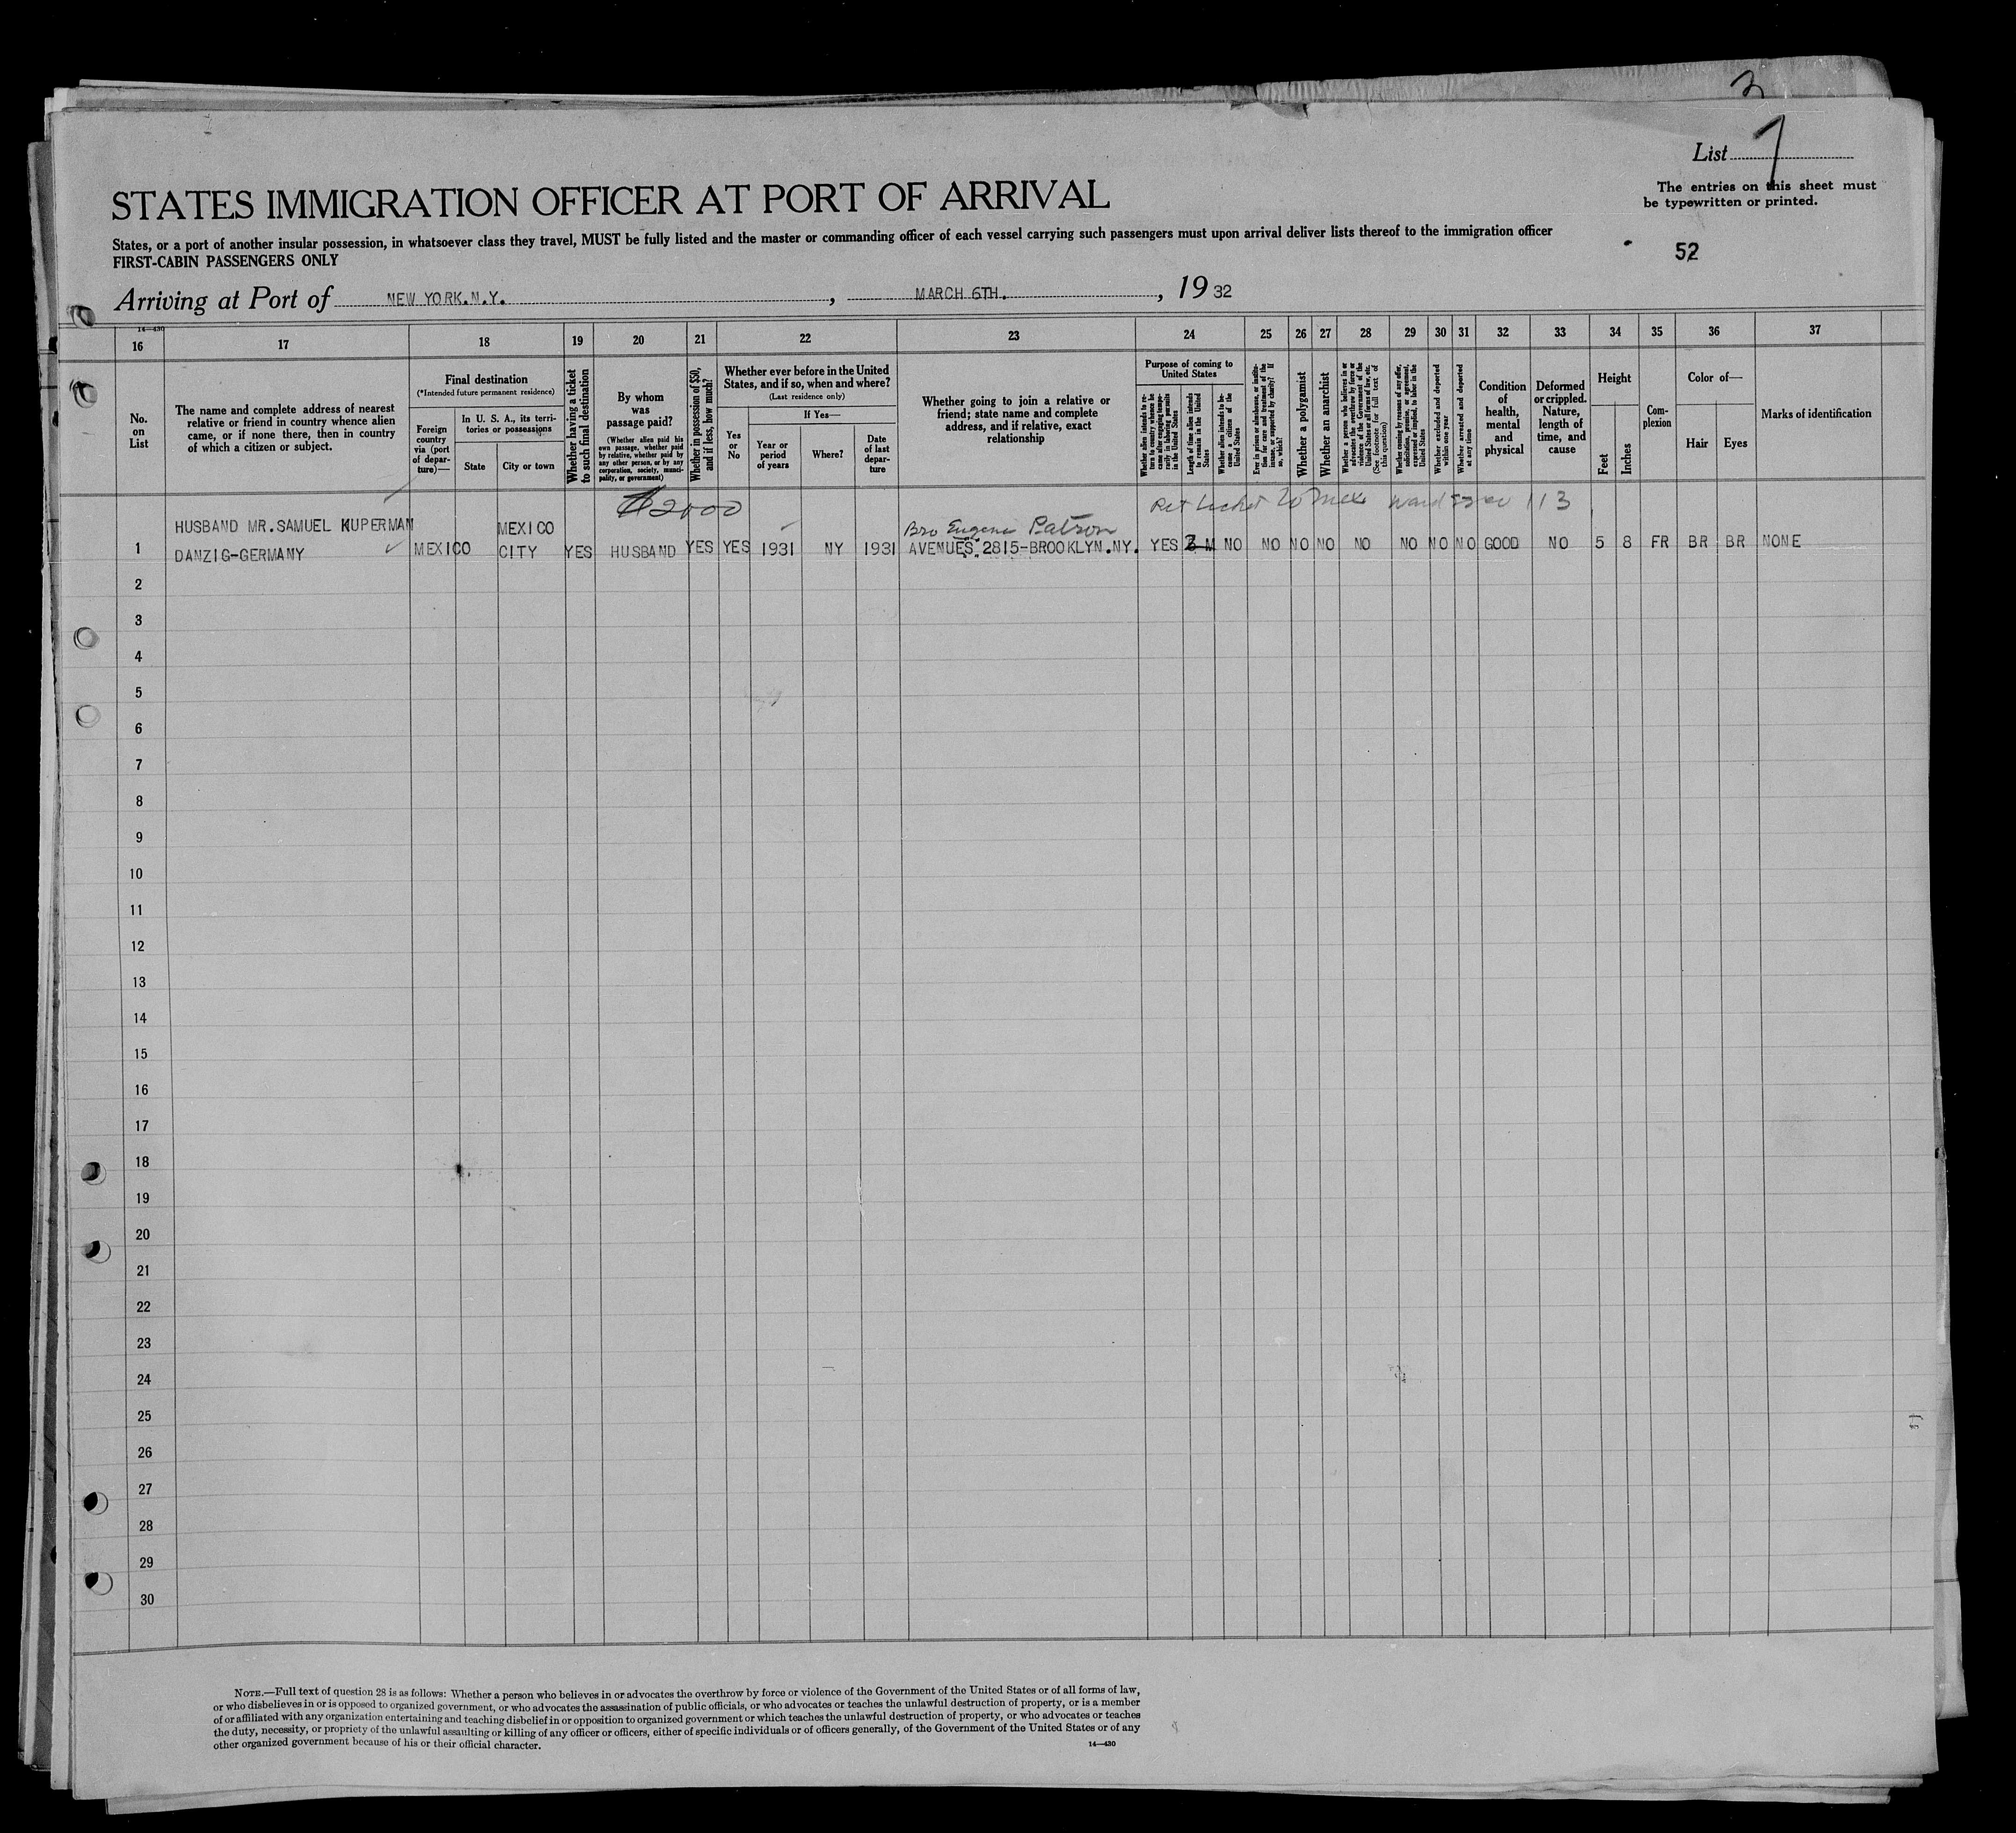 2
List 7
The entries on this sheet must
be typewritten or printed.
STATES IMMIGRATION OFFICER AT PORT OF ARRIVAL
States, or a port of another insular possession, in whatsoever class they travel, MUST be fully listed and the master or commanding officer of each vessel carrying such passengers must upon arrival deliver lists thereof to the immigration officer
FIRST-CABIN PASSENGERS ONLY
52
Arriving at Port of NEW YORK.N.Y. , MARCH 6TH. , 19 32
14—430
16 17 18 19 20 21 22 23 24 25 26 27 28 29 30 31 32 33 34 35 36 37
No.
on
List
The name and complete address of nearest
relative or friend in country whence alien
came, or if none there, then in country
of which a citizen or subject.
Final destination
(*Intended future permanent residence)
Foreign
country
via (port
of depar-
ture)—
In U. S. A., its terri-
tories or possessions
State
City or town
Whether having a ticket
to such final destination
By whom
was
passage paid?
(Whether alien paid his
own passage, whether paid
by relative, whether paid by
any other person, or by any
corporation, society, munici-
pality, or government)
Whether in possession of $50,
and if less, how much?
Whether ever before in the United
States, and if so, when and where?
(Last residence only)
Yes
or
No
If Yes—
Year or
period
of years
Where?
Date
of last
depar-
ture
Whether going to join a relative or
friend; state name and complete
address, and if relative, exact
relationship
Purpose of coming to
United States
Whether alien intends to re-
turn to country whence he
came after engaging tempo-
rarily in laboring pursuits
in the United States
Length of time alien intends
to remain in the United
States
Whether alien intends to be-
come a citizen of the
United States
Ever in prison or almshouse, or institu-
tion for care and treatment of the
insane, or supported by charity? If
so, which?
Whether a polygamist
Whether an anarchist
Whether a person who believes in or
advocates the overthrow by force or
violence of the Government of the
United States or all forms of law, etc.
(See footnote for full text of
this question)
Whether coming by reasons of any offer,
solicitation, promise, or agreement,
expressed or implied, to labor in the
United States
Whether excluded and deported
within one year
Whether arrested and deported
at any time
Condition
of
health,
mental
and
physical
Deformed
or crippled.
Nature,
length of
time, and
cause
Height
Feet
Inches
Com-
plexion
Color of—
Hair
Eyes
Marks of identification
$2000
Ret ticket to Mex
HUSBAND MR.SAMUEL KUPERMAN MEXICO Bro Eugene Patron
1 DANZIG-GERMANY MEXICO CITY YES HUSBAND YES YES 1931 NY 1931 AVENUES.2815-BROOKLYN.NY. YES M NO NO NO NO NO NO NO NO GOOD NO 5 8 FR BR BR NONE
2
3
4
5
6
7
8
9
10
11
12
13
14
15
16
17
18
19
20
21
22
23
24
25
26
27
28
29
30
NOTE.—Full text of question 28 is as follows: Whether a person who believes in or advocates the overthrow by force or violence of the Government of the United States or of all forms of law,
or who disbelieves in or is opposed to organized government, or who advocates the assassination of public officials, or who advocates or teaches the unlawful destruction of property, or is a member
of or affiliated with any organization entertaining and teaching disbelief in or opposition to organized government or which teaches the unlawful destruction of property, or who advocates or teaches
the duty, necessity, or propriety of the unlawful assaulting or killing of any officer or officers, either of specific individuals or of officers generally, of the Government of the United States or of any
other organized government because of his or their official character.
14—430